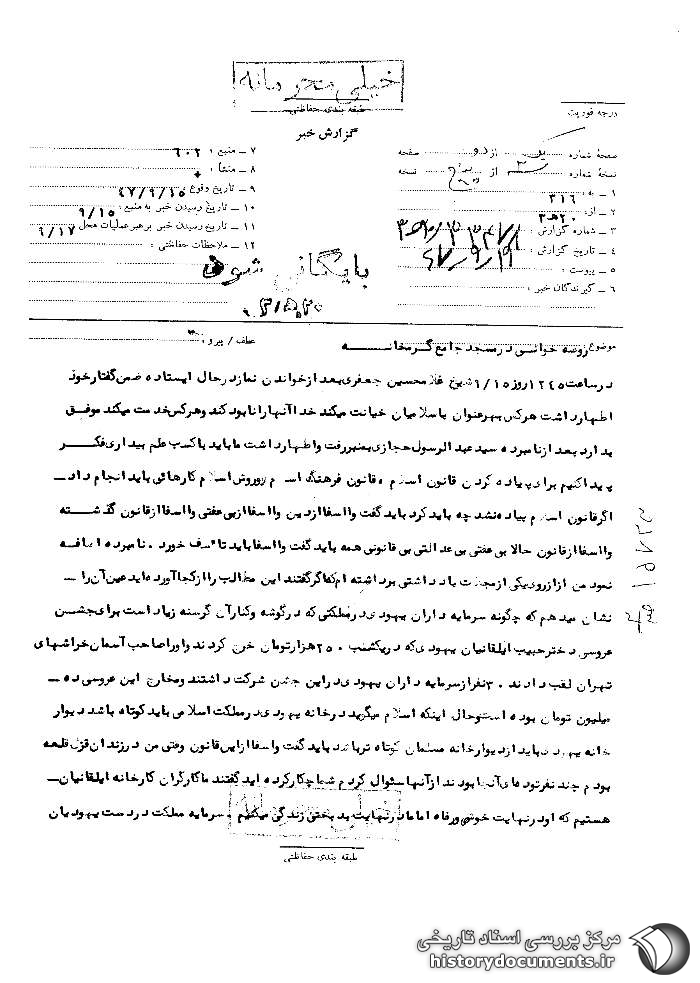 خیلی محرمانه
طبقه بندی حفاظتی
گزارش خبر
درجه فوریت
صفحهٔ شماره یک از دو صفحه
نسخهٔ شماره از پنج نسخه
۱ ـ به : ۳۱۶
۲ ـ از : ۲۰ ه ۳
۳ ـ شماره گزارش :
۴ ـ تاریخ گزارش :
۵ ـ پیوست :
۶ ـ گیرندگان خبر :
۷ ـ منبع : ۶۰۲
۸ ـ منشأ :
۹ ـ تاریخ وقوع ۴۷/۹/۱۵
۱۰ ـ تاریخ رسیدن خبر به منبع : ۹/۱۵
۱۱ ـ تاریخ رسیدن خبر برهبر عملیات محل ۹/۱۷
۱۲ ـ ملاحظات حفاظتی :
بایگانی شود
موضوع روضه خوانی در مسجد جامع گرمخانه
عطف / پیرو :
در ساعت ۱۲۴۵ روز ۹/۱۵ شیخ غلامحسین جعفری بعد از خواندن نماز در حال ایستاده ضمن گفتار خود
اظهار داشت هر کس بهر عنوان باسلامیان خیانت میکند خدا آنها را نابود کند و هر کس خدمت میکند موفق
بدارد بعد از نامبرده سید عبدالرسول حجازی بمنبر رفت و اظهار داشت ما باید با کسب علم بیداری فکر
پیدا کنیم برای پیاده کردن قانون اسلام و قانون فرهنگ اسلام و روش اسلام کارهائی باید انجام داد ـ
اگر قانون اسلام پیاده نشد چه باید کرد باید گفت وااسفا از دین وااسفا از بی عفتی وااسفا از قانون گذشته
وااسفا از قانون حالا بی عفتی بی عدالتی بی قانونی همه باید گفت وااسفا باید تاسف خورد . نامبرده اضافه
نمود من از از روی یکی از مجلات یادداشتی برداشته ام که اگر گفتند این مطالب را از کجا آورده اید عین آن را ـ
نشان میدهم که چگونه سرمایه داران یهودی در مملکتی که در گوشه و کنار آن گرسنه زیاد است برای جشن
عروسی دختر حبیب ایلقانیان یهودی که در یکشب ۲۵۰ هزار تومان خرج کردند و او را صاحب آسمان خراشهای
تهران لقب دادند . ۳۰ نفر از سرمایه داران یهودی در این جشن شرکت داشتند و مخارج این عروسی ده ـ
میلیون تومان بوده است و حال اینکه اسلام میگوید در خانه یهودی در مملکت اسلامی باید کوتاه باشد دیوار
خانه یهودی باید از دیوار خانه مسلمان کوتاه تر باشد باید گفت وااسفا از این قانون وقتی من در زندان قزل قلعه
بودم چند نفر توده ای آنجا بودند از آنها سئوال کردم شما چکار کرده اید گفتند ما کارگران کارخانه ایلقانیان ـ
هستیم که او در نهایت خوشی و رفاه اما ما در نهایت بدبختی زندگی میکنیم . سرمایه مملکت در دست یهودیان
طبقه بندی حفاظتی
مرکز بررسی اسناد تاریخی
historydocuments.ir